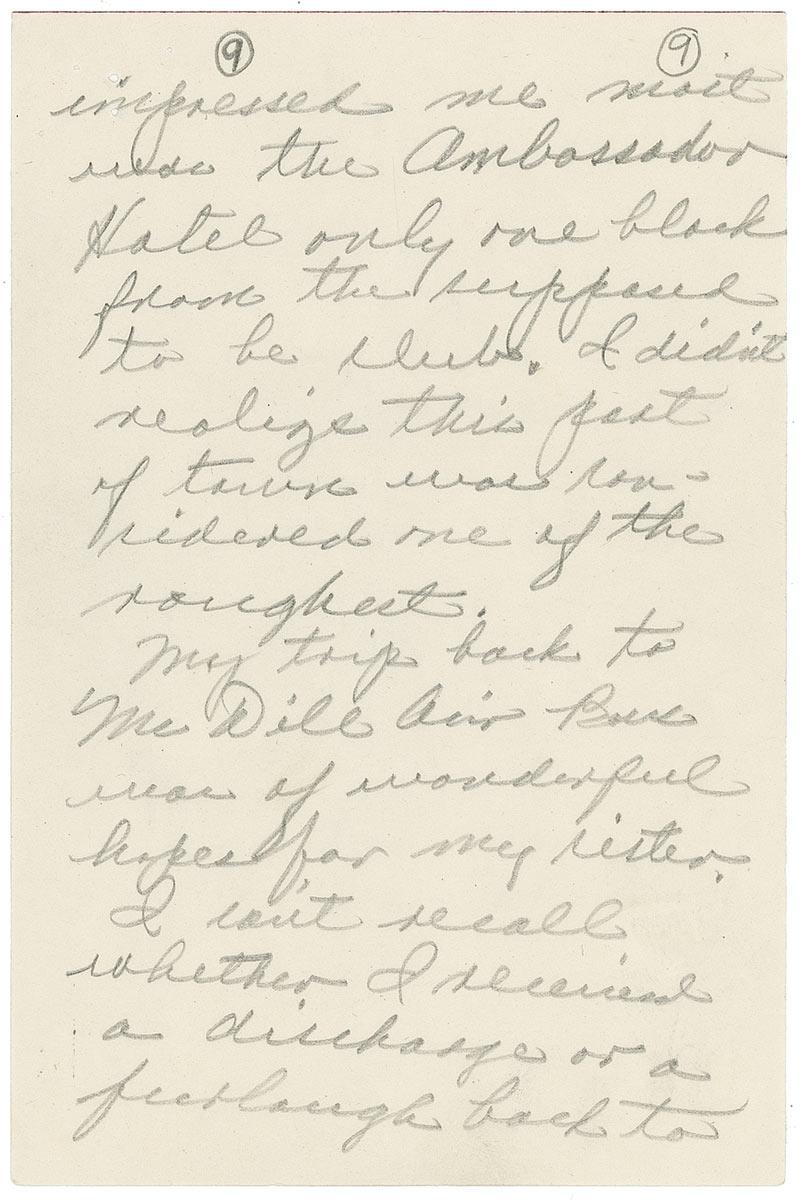 9 9
impressed me most
was the Ambassador
Hotel only one block
from the supposed
to be slub. I didn't
realize this part
of town was con-
sidered one of the
roughest.
My trip back to
Mc Dill Air Base
was of wonderful
hopes for my sister.
I can't recall
whether I received
a discharge or a
furlough back to